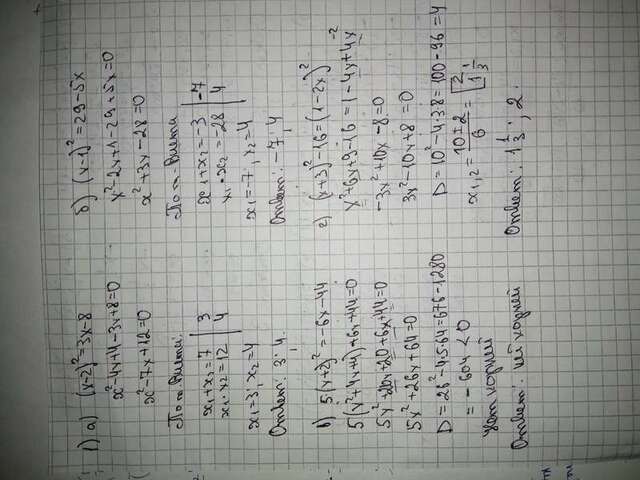 1) а) (x-2)²=3x-8
x²-4x+4-3x+8=0
x²-7x+12=0
По т. Виета:
x₁+x₂=7 | 3
x₁·x₂=12 | 4
x₁=3; x₂=4
Ответ: 3; 4.
б) (x-1)²=29-5x
x²-2x+1-29+5x=0
x²+3x-28=0
По т. Виета
x₁+x₂=-3 | -7
x₁·x₂=-28 | 4
x₁=-7, x₂=4
Ответ: -7; 4
в) 5(x+2)²=-6x-44
5(x²+4x+4)+6x+44=0
5x²+20x+20+6x+44=0
5x²+26x+64=0
D=26²-4·5·64=676-1280
=-604<0
Нет корней
Ответ: нет корней
г) (x+3)²-16=(1-2x)²
x²+6x+9-16=1-4x+4x²
-3x²+10x-8=0
3x²-10x+8=0
D=10²-4·3·8=100-96=4
x₁,₂=(10±2)/6=[2 1 1/3
Ответ: 1 1/3; 2.